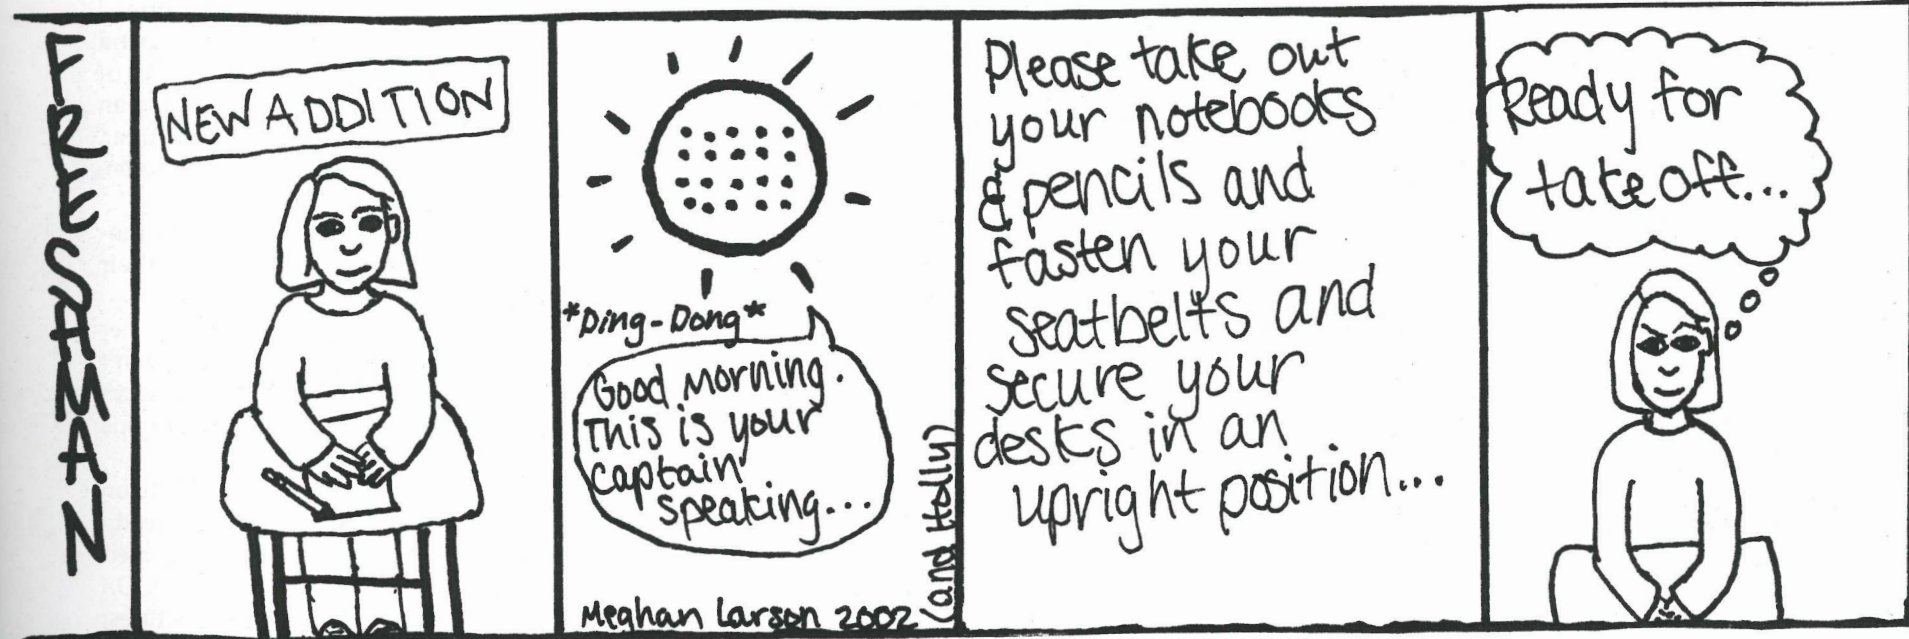 FRESHMAN
NEW ADDITION
*Ding-Dong*
Good morning.
This is your
captain
speaking...
Meghan Larson 2002
(and Holly)
Please take out
your notebooks
& pencils and
fasten your
seatbelts and
secure your
desks in an
upright position...
Ready for
take off...